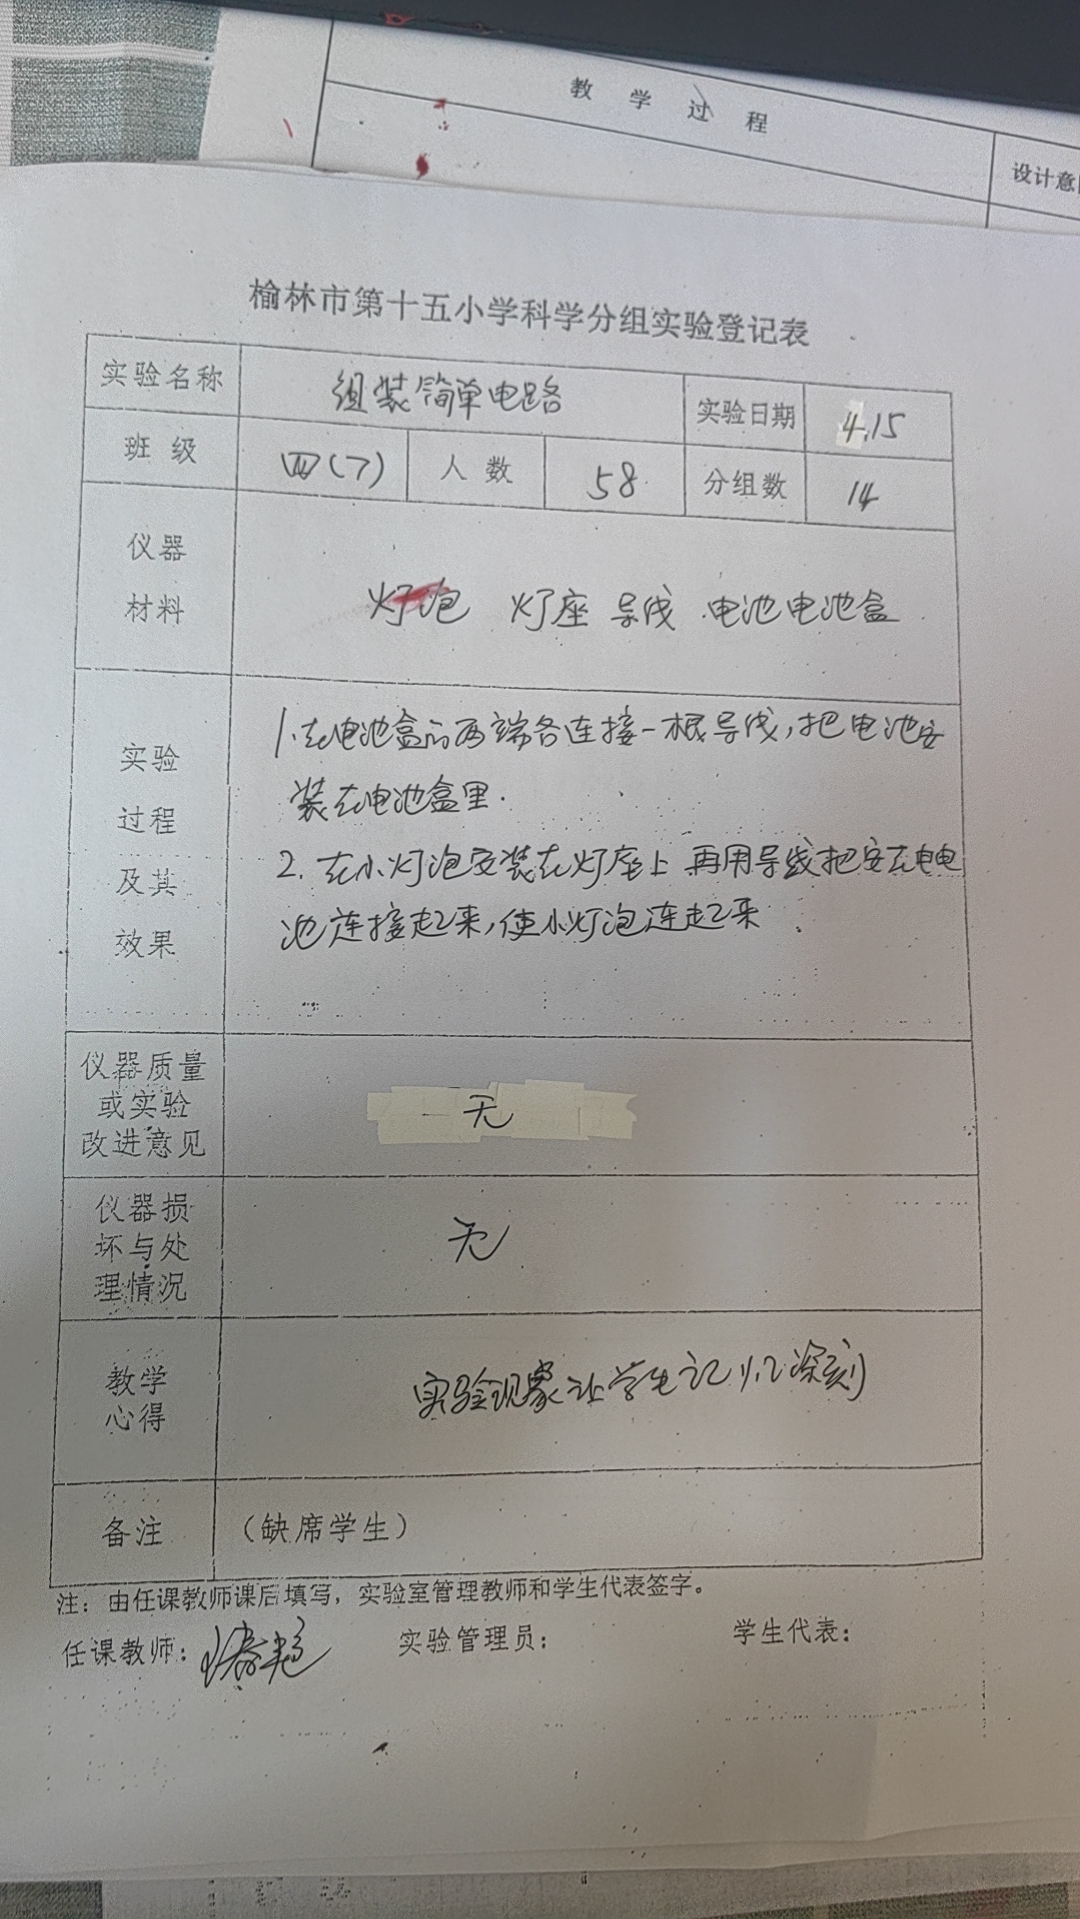 教学过程
设计意
榆林市第十五小学科学分组实验登记表
实验名称 组装简单电路 实验日期 4.15
班级 四(7) 人数 58 分组数 14
仪器
材料
灯泡 灯座 导线 电池电池盒
实验
过程
及其
效果
1.在电池盒的两端各连接一根导线,把电池安
装在电池盒里.
2.在小灯泡安装在灯座上 再用导线把安在电电
池连接起来,使小灯泡连起来
仪器质量
或实验
改进意见
一无
仪器损
坏与处
理情况
无
教学
心得
实验现象让学生记忆深刻
备注 (缺席学生)
注:由任课教师课后填写,实验室管理教师和学生代表签字。
任课教师: 实验管理员: 学生代表: